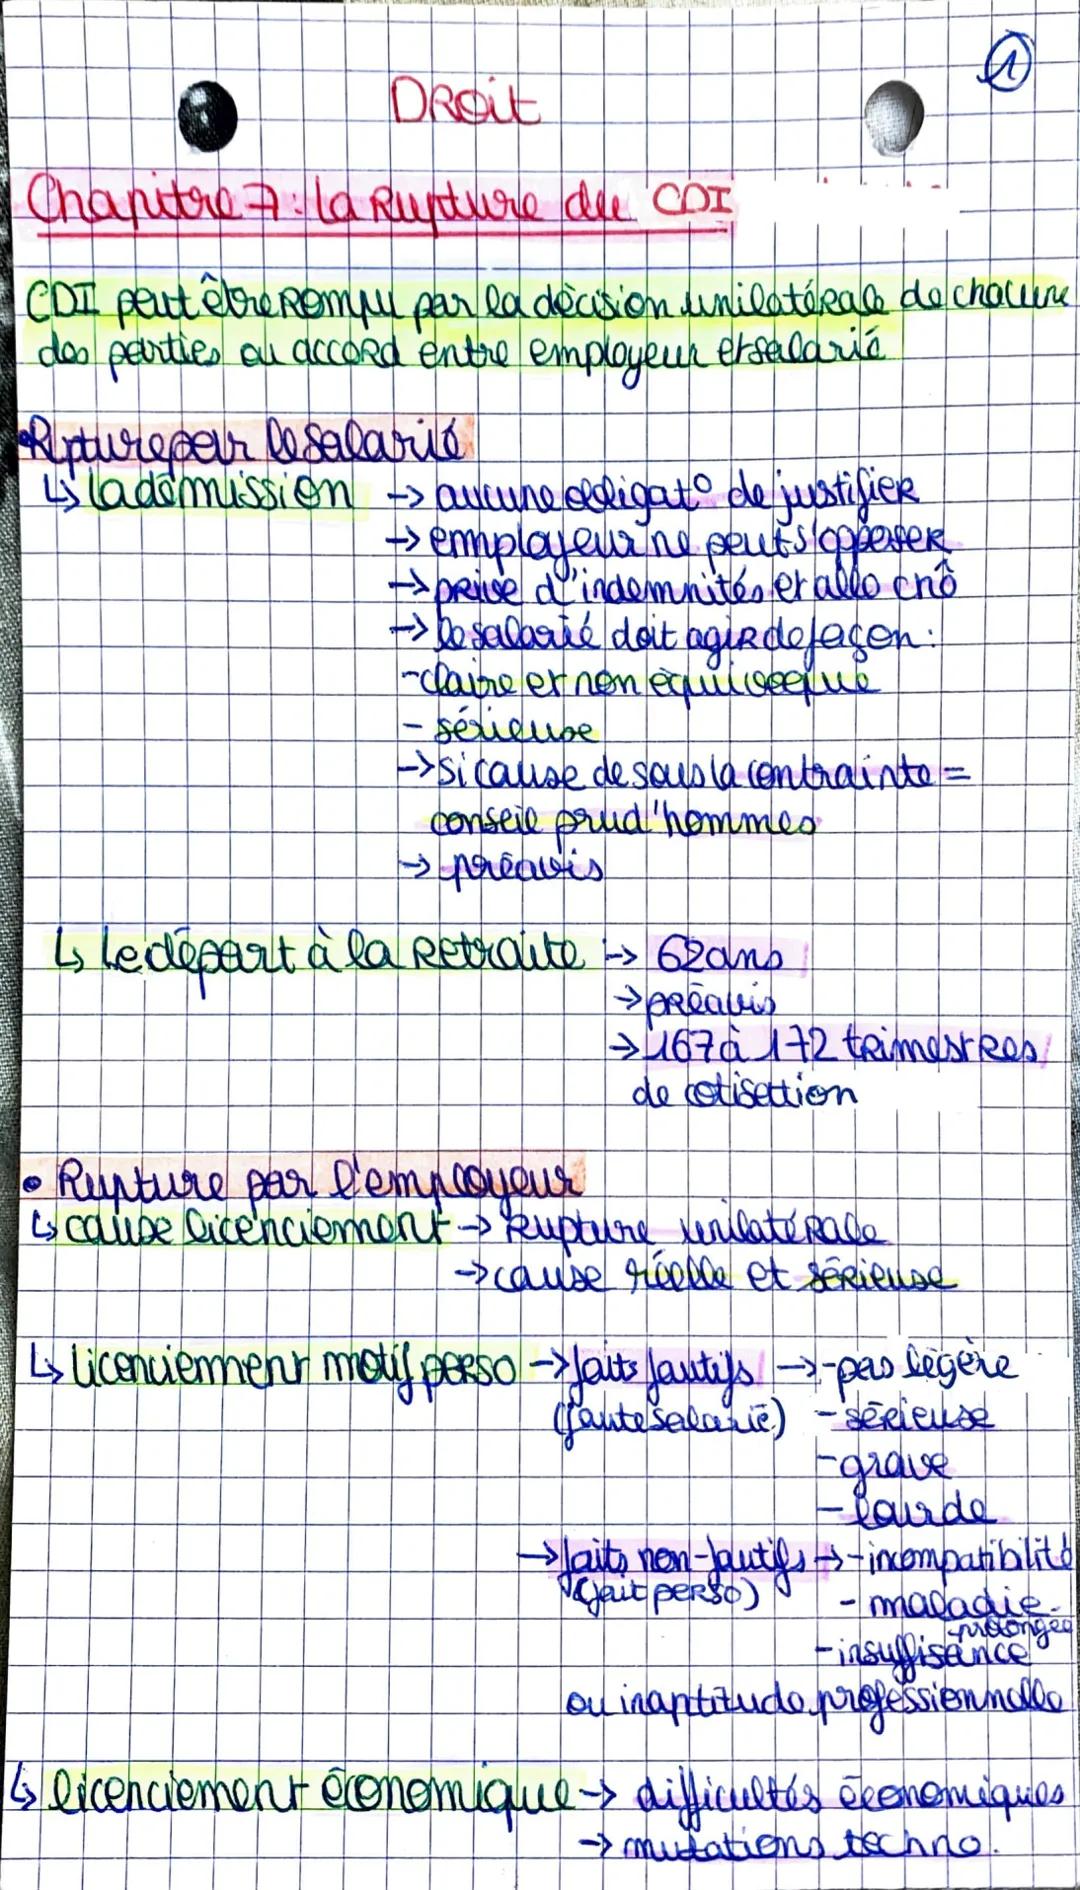 1
DROIT
Chapitre 7 : La Rupture du CDI
CDI peut être rompu par la décision unilatérale de chacune
des parties ou accord entre employeur et salarié
• Rupture par le salarié
↳ la démission → aucune obligat° de justifier
→ employeur ne peut s'opposer
→ prive d'indemnités et allo chô
→ le salarié doit agir de façon :
- claire et non équivoque
- sérieuse
→ si cause de sous la contrainte =
conseil prud'hommes
→ préavis
↳ Le départ à la Retraite → 62 ans
→ préavis
→ 167 à 172 trimestres
de cotisation
• Rupture par l'employeur
↳ cause licenciement → Rupture unilatérale
→ cause réelle et sérieuse
↳ licenciement motif perso → faits fautifs → - pas légère
(faute salarié) - sérieuse
- grave
- lourde
→ faits non-fautifs → - incompatibilité
(fait perso) - maladie
prolongée
- insuffisance
ou inaptitude professionnelle
↳ licenciement économique → difficultés économiques
→ mutations techno.